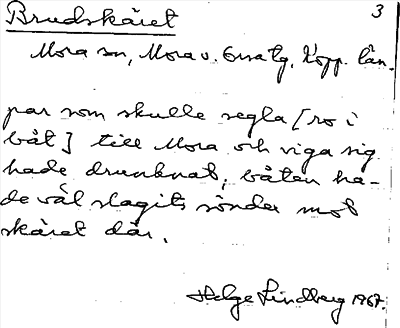 Brudskäret
3
Mora sn, Mora o. Orsa tg, Kopp. län.
par som skulle segla [ro i
båt] till Mora och viga sig
hade drunknat, båten ha-
de väl slagits sönder mot
skäret där.
Helge Lindberg 1967.